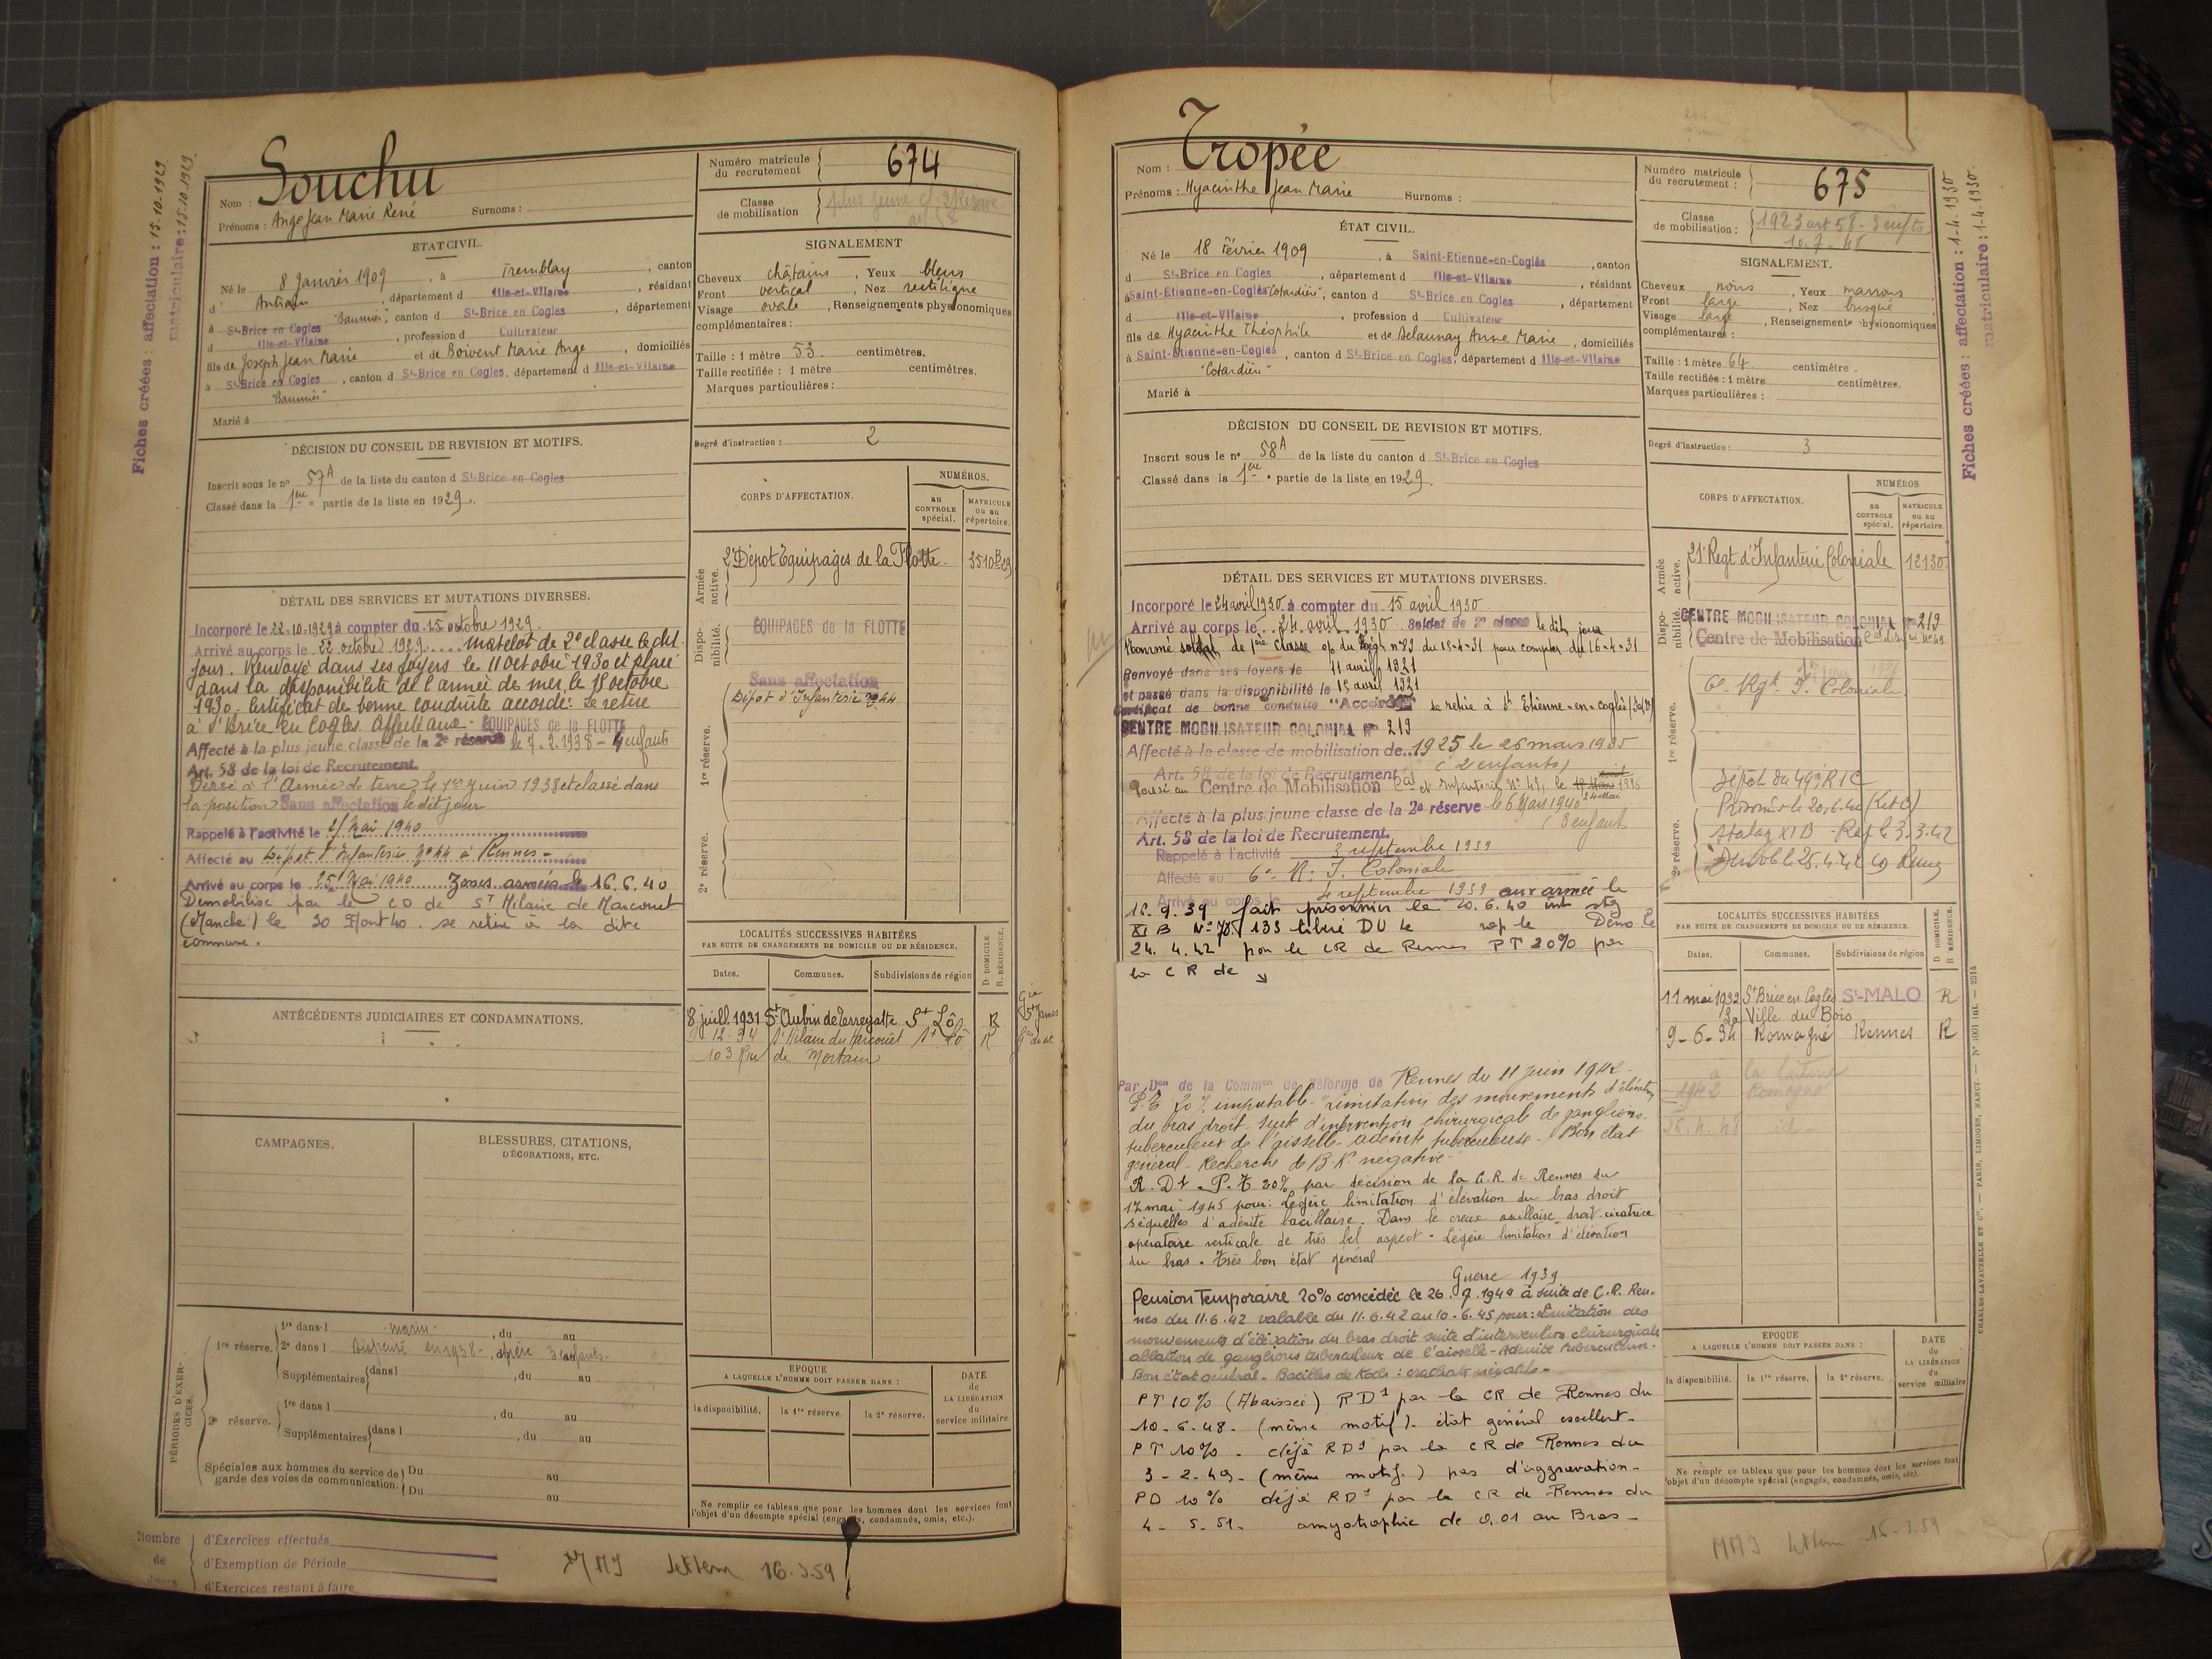 Fiches créées : affectation : 15.10.1929
matriculaire : 15.10.1929
Nom : Souchu
Prénoms : Ange Jean Marie René Surnoms :
Numéro matricule du recrutement 674
Classe de mobilisation plus jeune cl. 2 Réserve
ETAT CIVIL.
Né le 8 Janvier 1909, à Tremblay, canton
d Antrain, département d Ille-et-Vilaine, résidant
à St-Brice en Cogles "Baumier", canton d St-Brice en Cogles, département
d Ille-et-Vilaine, profession d Cultivateur
fils de Joseph Jean Marie et de Boivent Marie Ange, domiciliés
à St-Brice en Cogles, canton d St-Brice en Cogles, département d Ille-et-Vilaine
"Baumier"
Marié à
SIGNALEMENT
Cheveux châtains, Yeux bleus
Front vertical, Nez rectiligne
Visage ovale, Renseignements physionomiques
complémentaires :
Taille : 1 mètre 53 centimètres.
Taille rectifiée : 1 mètre centimètres.
Marques particulières :
DÉCISION DU CONSEIL DE REVISION ET MOTIFS.
Inscrit sous le no 57A de la liste du canton d St-Brice en Cogles
Classé dans la 1ere partie de la liste en 1929.
Degré d'instruction : 2
CORPS D'AFFECTATION.
NUMÉROS.
au CONTROLE spécial.
MATRICULE ou au répertoire.
Armée active.
2e Dépot Equipages de la Flotte. 3510B29
Disponibilité.
EQUIPAGES de la FLOTTE
1re réserve.
Sans affectation
Dépot d'Infanterie No 44
2e réserve.
DÉTAIL DES SERVICES ET MUTATIONS DIVERSES.
Incorporé le 22-10-1929 à compter du 15 octobre 1929.
Arrivé au corps le 22 octobre 1929. matelot de 2e classe le dit
jour. Renvoyé dans ses foyers le 11 octobre 1930 et placé
dans la disponibilité de l'armée de mer le 15 octobre
1930. Certificat de bonne conduite accordé. Se retire
à St Brice en Cogles. Affecté aux EQUIPAGES de la FLOTTE
Affecté à la plus jeune classe de la 2e réserve le 7.2.1938 - 4 enfants
Art. 58 de la loi de Recrutement.
Versé à l'Armée de terre le 1er Juin 1938 et classé dans
la position Sans affectation le dit jour
Rappelé à l'activité le 21 Mai 1940
Affecté au Dépot d'Infanterie No 44 à Rennes -
Arrivé au corps le 25 Mai 1940 Zones armées le 16.6.40
Démobilisé par le CD de St Hilaire de Harcouet
(Manche) le 20 Aout 40. se retire à la dite
commune.
ANTÉCÉDENTS JUDICIAIRES ET CONDAMNATIONS.
LOCALITÉS SUCCESSIVES HABITÉES
PAR SUITE DE CHANGEMENTS DE DOMICILE OU DE RÉSIDENCE.
Dates. Communes. Subdivisions de région D. DOMICILE. R. RÉSIDENCE.
8 juill. 1931 St Aubin de Terregatte St Lô R
12.34 St Hilaire du Harcouët St Lô R
103 Rue de Mortain
CAMPAGNES.
BLESSURES, CITATIONS,
DÉCORATIONS, ETC.
PÉRIODES D'EXERCICES.
1re réserve. 1re dans l marin, du au
2e dans l Dispensé en 1938 - père 3 enfants -
Supplémentaires dans l , du au
, du au
2e réserve. 1re dans l , du au
Supplémentaires dans l , du au
Spéciales aux hommes du service de garde des voies de communication. Du au
Du au
EPOQUE
A LAQUELLE L'HOMME DOIT PASSER DANS :
la disponibilité. la 1re réserve. la 2e réserve.
DATE de LA LIBÉRATION du service militaire
Ne remplir ce tableau que pour les hommes dont les services font
l'objet d'un décompte spécial (engagés, condamnés, omis, etc.).
Nombre de Jours
d'Exercices effectués
d'Exemption de Période
d'Exercices restant à faire
16.3.59
Nom : Tropée
Prénoms : Hyacinthe Jean Marie Surnoms :
Numéro matricule du recrutement : 675
Classe de mobilisation : 1923 art 58 - 3 enfts
Fiches créées : affectation : 1-4-1930
matriculaire : 1-4-1930.
ÉTAT CIVIL.
Né le 18 Février 1909, à Saint-Etienne-en-Coglès, canton
d St-Brice en Cogles, département d Ille-et-Vilaine, résidant
à Saint-Etienne-en-Coglès "Cotardière", canton d St-Brice en Cogles, département
d Ille-et-Vilaine, profession d Cultivateur
fils de Hyacinthe Théophile et de Delaunay Anne Marie, domiciliés
à Saint-Etienne-en-Coglès, canton d St-Brice en Cogles, département d Ille-et-Vilaine
"Cotardière"
Marié à
SIGNALEMENT.
Cheveux noirs, Yeux marrons
Front large, Nez busqué
Visage large, Renseignements physionomiques
complémentaires :
Taille : 1 mètre 64 centimètre.
Taille rectifiée : 1 mètre centimètres.
Marques particulières :
DÉCISION DU CONSEIL DE REVISION ET MOTIFS.
Inscrit sous le no 58A de la liste du canton d St-Brice en Cogles
Classé dans la 1ere partie de la liste en 1929.
Degré d'instruction : 3
CORPS D'AFFECTATION.
NUMÉROS
au CONTROLE spécial.
MATRICULE ou au répertoire.
Armée active.
21e Regt d'Infanterie Coloniale 12130
Disponibilité.
CENTRE MOBILISATEUR COLONIAL No 219
Centre de Mobilisation Colonial No 49
1re réserve.
6e Rgt I. Coloniale
Dépôt du 44e RIC
Prisonnier le 20.6.40
2e réserve.
Stalag XI B - Rap. le 3.3.42
Démob le 25.4.42 CD Rennes
DÉTAIL DES SERVICES ET MUTATIONS DIVERSES.
Incorporé le 24 avril 1930 à compter du 15 avril 1930
Arrivé au corps le 24 avril 1930 Soldat de 2e classe le dit jour
Nommé soldat de 1ere classe o/ du Regt no 83 du 15-4-31 pour compter du 16-4-31
Renvoyé dans ses foyers le 11 avril 1931
et passé dans la disponibilité le 15 avril 1931
Certificat de bonne conduite "Accordé" se retire à St Etienne-en-Coglès
CENTRE MOBILISATEUR COLONIAL No 219
Affecté à la classe de mobilisation de 1925 le 26 mars 1935
Art. 58 de la loi de Recrutement (2 enfants)
Passé au Centre de Mobilisation Cal et Infanterie No 49, le 1936
Affecté à la plus jeune classe de la 2e réserve le 6 Mars 1940
Art. 58 de la loi de Recrutement. (3 enfants)
Rappelé à l'activité 3 septembre 1939
Affecté au 6e R. I. Coloniale
Arrivé au corps le 4 septembre 1939 aux armées le
16.9.39 fait prisonnier le 20.6.40 int stg
XI B No 70133 libéré DU le rap le Démob le
24.4.42 par le CR de Rennes PT 20% par
la C R de
Par Don de la Common de Réforme de Rennes du 11 juin 1942 -
P.T. 20% imputable - Limitation des mouvements d'élévation
du bras droit - suite d'intervention chirurgicale de ganglions
tuberculeux de l'aisselle - adénite tuberculeuse. Bon état
général - Recherche de B.K. négative -
R. Dt P.T 20% par décision de la C.R. de Rennes du
17 mai 1945 pour : Légère limitation d'élévation du bras droit
séquelles d'adénite bacillaire. Dans le creux axillaire droit cicatrice
opératoire verticale de très bel aspect - Légère limitation d'élévation
du bras. Très bon état général
Guerre 1939
Pension Temporaire 20% concédée le 26.9.1944 à suite de C.R. Ren-
nes du 11.6.42 valable du 11.6.42 au 10.6.45 pour : Limitation des
mouvements d'élévation du bras droit suite d'intervention chirurgicale
ablation de ganglions tuberculeux de l'aisselle - Adénite tuberculeuse.
Bon état général - Bacilles de Koch : crachats négatifs -
PT 10% (Abaissée) RD1 par la CR de Rennes du
10.6.48. (même motif). état général excellent.
PT 10% - déjà RD1 par la CR de Rennes du
3-2-49- (même motif.) pas d'aggravation -
PD 10% déjà RD1 par la CR de Rennes du
4-5-51. amyotrophie de 0.01 au Bras -
LOCALITÉS SUCCESSIVES HABITÉES
PAR SUITE DE CHANGEMENTS DE DOMICILE OU DE RÉSIDENCE.
Dates. Communes. Subdivisions de région D. DOMICILE R. RÉSIDENCE.
11 mai 1932 St Brice en Coglès St-MALO R
La Ville du Bois
9-6-34 Romagné Rennes R
1942 Romagné
26.4.48 id -
EPOQUE
A LAQUELLE L'HOMME DOIT PASSER DANS :
la disponibilité. la 1re réserve. la 2e réserve.
DATE de LA LIBÉRATION du service militaire
Ne remplir ce tableau que pour les hommes dont les services font
l'objet d'un décompte spécial (engagés, condamnés, omis, etc).
CHARLES-LAVAUZELLE ET Cie. — PARIS, LIMOGES, NANCY.